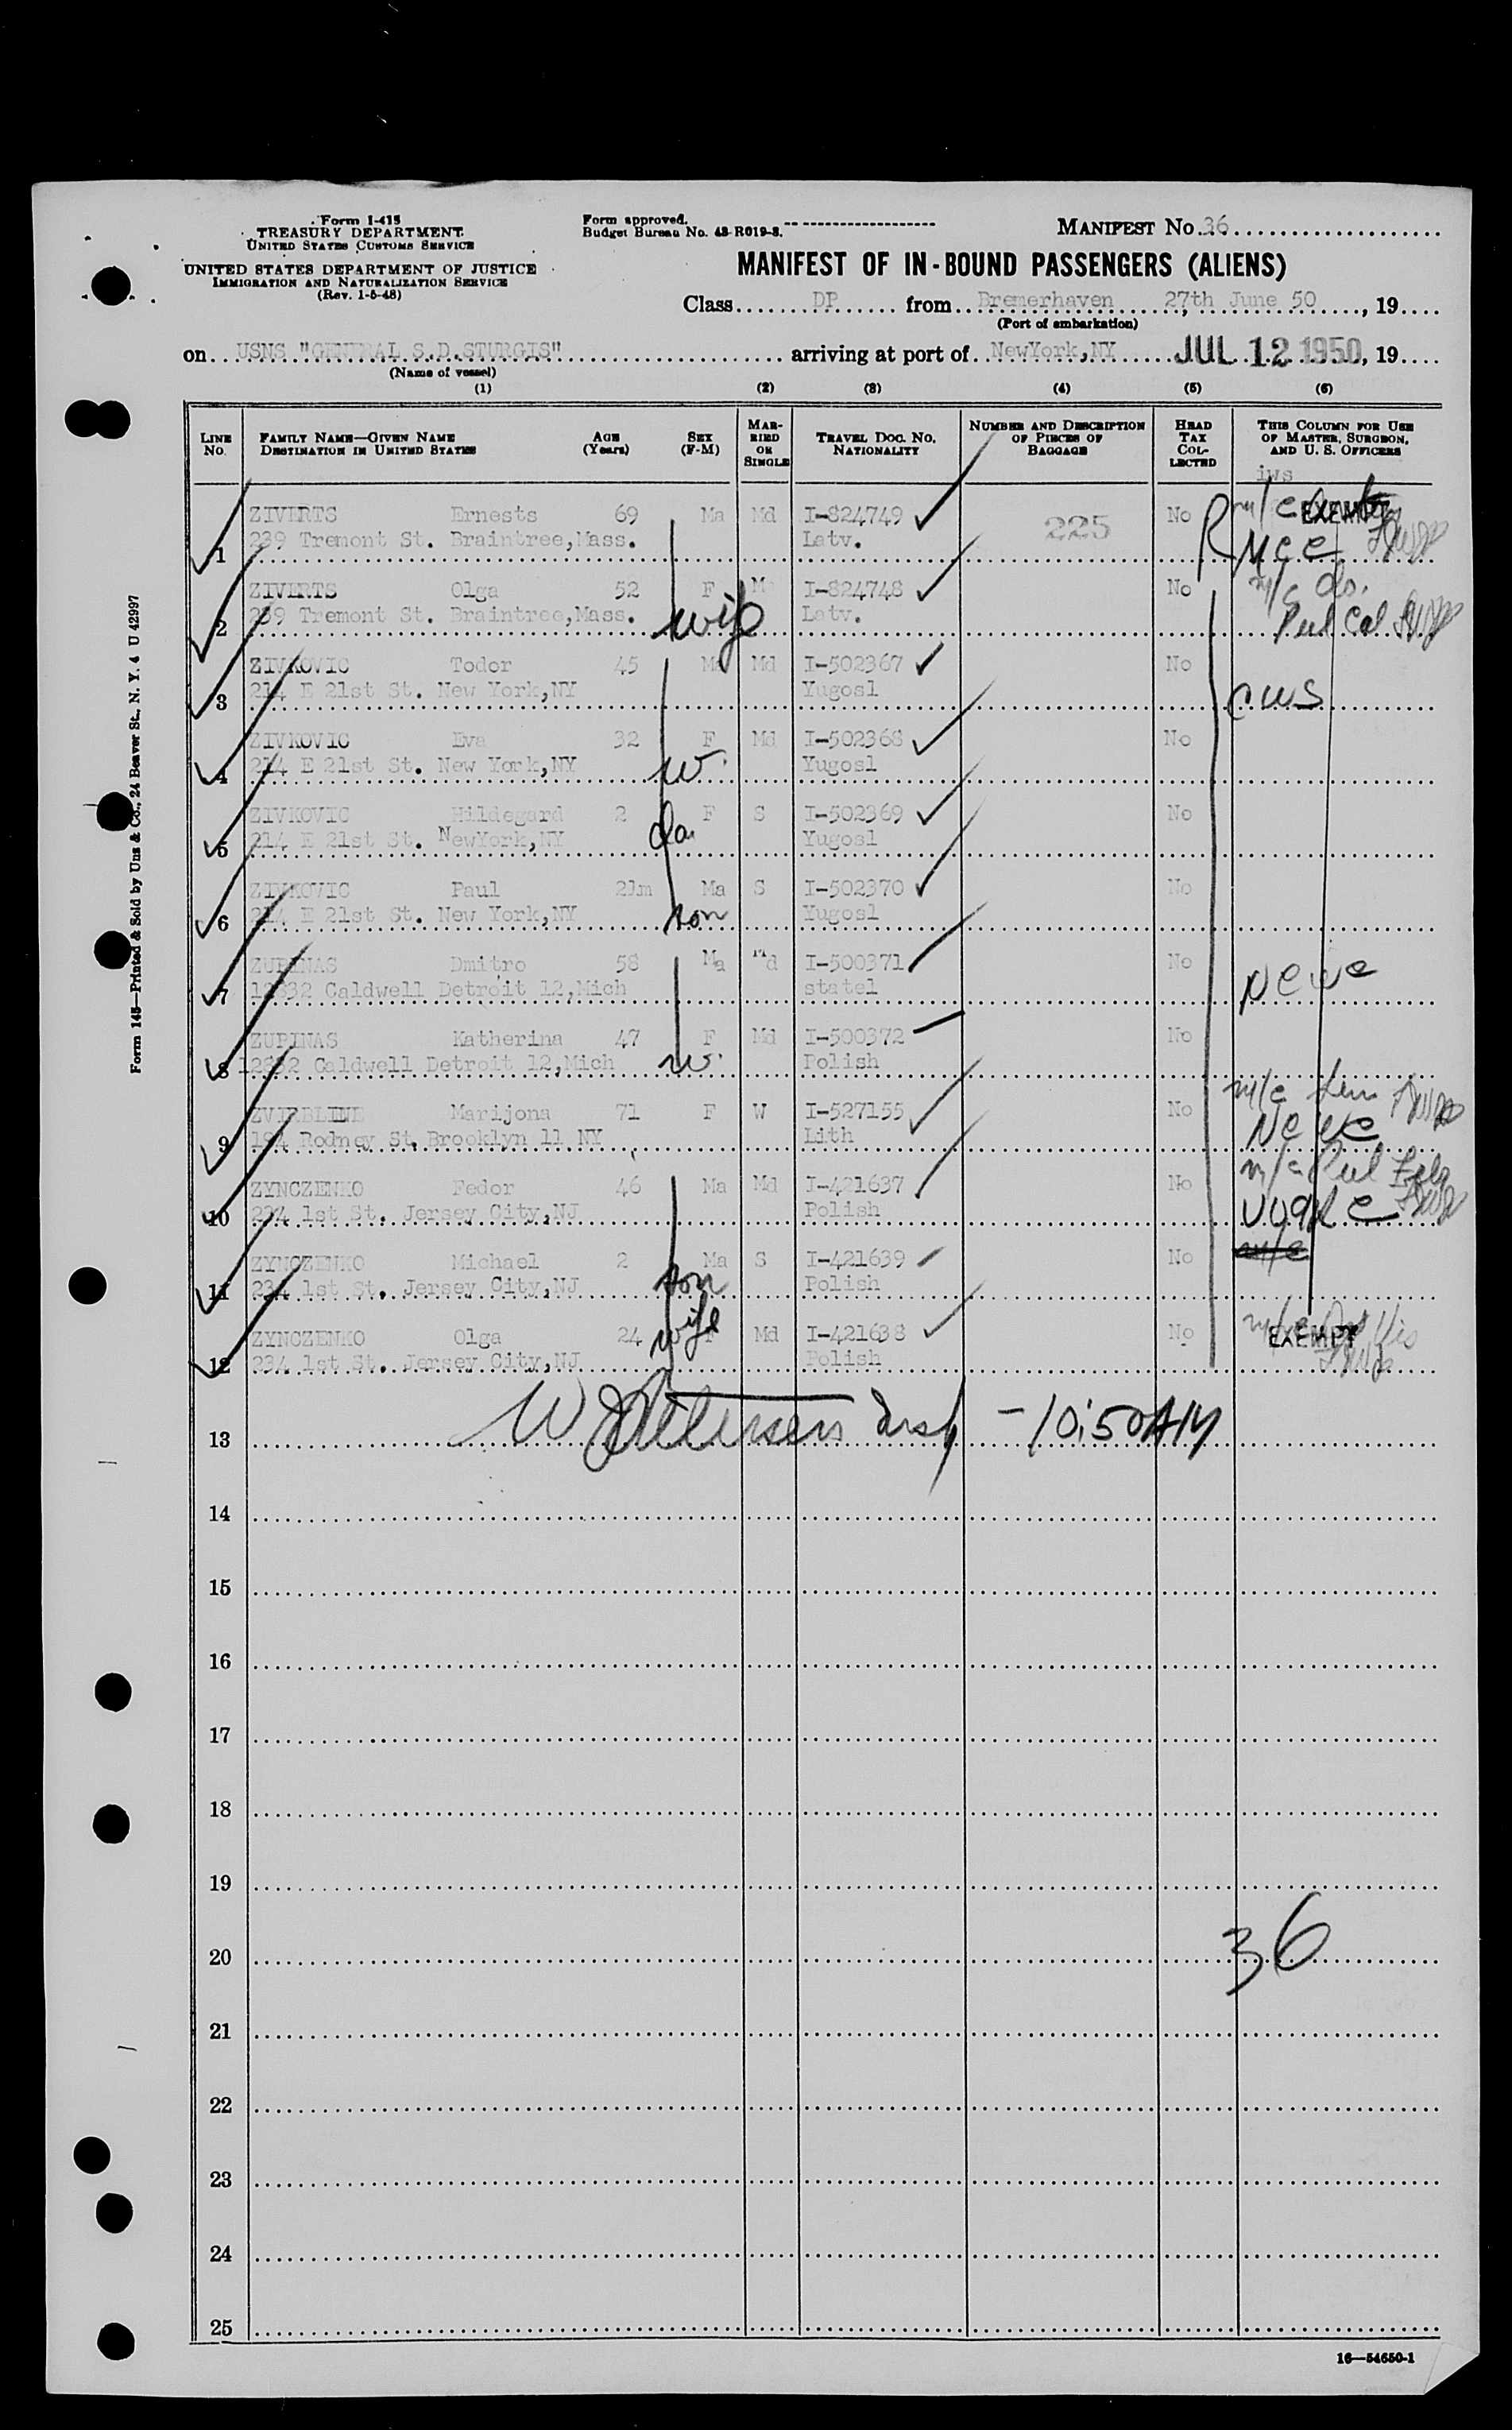 Form I-415
TREASURY DEPARTMENT
UNITED STATES CUSTOMS SERVICE
UNITED STATES DEPARTMENT OF JUSTICE
IMMIGRATION AND NATURALIZATION SERVICE
(Rev. 1-5-48)
Form approved.
Budget Bureau No. 43-R019-3.
MANIFEST No. 36
MANIFEST OF IN-BOUND PASSENGERS (ALIENS)
Class DP from Bremerhaven 27th June 50, 19
(Port of embarkation)
on USNS "GENERAL S.D.STURGIS" arriving at port of NewYork,NY JUL 12 1950, 19
(Name of vessel)
(1) (2) (3) (4) (5) (6)
LINE No. FAMILY NAME—GIVEN NAME DESTINATION IN UNITED STATES AGE (Years) SEX (F-M) MARRIED OR SINGLE TRAVEL DOC. NO. NATIONALITY NUMBER AND DESCRIPTION OF PIECES OF BAGGAGE HEAD TAX COLLECTED THIS COLUMN FOR USE OF MASTER, SURGEON, AND U. S. OFFICERS
iws
ZIVERTS Ernests 69 Ma Md I-824749 225 No EXEMPT
1 239 Tremont St. Braintree,Mass. Latv.
ZIVERTS Olga 52 F M I-824748 No
2 239 Tremont St. Braintree,Mass. wife Latv.
ZIVKOVIC Todor 45 Ma Md I-502367 No
3 214 E 21st St. New York,NY Yugosl cws
ZIVKOVIC Eva 32 F Md I-502368 No
4 214 E 21st St. New York,NY w. Yugosl
ZIVKOVIC Hildegard 2 F S I-502369 No
5 214 E 21st St. NewYork,NY da Yugosl
ZIVKOVIC Paul 21m Ma S I-502370 No
6 214 E 21st St. New York,NY son Yugosl
ZUBINAS Dmitro 58 Ma Md I-500371 No
7 12832 Caldwell Detroit 12,Mich statel
ZUBINAS Katherina 47 F Md I-500372 No
8 12832 Caldwell Detroit 12,Mich w. Polish
ZVIRBLIENE Marijona 71 F W I-527155 No m/c
9 194 Rodney St. Brooklyn 11 NY Lith
ZYNCZENKO Fedor 46 Ma Md I-421637 No m/c
10 234 1st St. Jersey City,NJ Polish
ZYNCZENKO Michael 2 Ma S I-421639 No m/c
11 234 1st St. Jersey City,NJ son Polish
ZYNCZENKO Olga 24 wife F Md I-421638 No EXEMPT
12 234 1st St. Jersey City,NJ Polish
13 Insp -10:50AM
14
15
16
17
18
19
20 36
21
22
23
24
25
16—54650-1
Form 145—Printed & Sold by Unz & Co., 24 Beaver St., N. Y. 4 U 42997